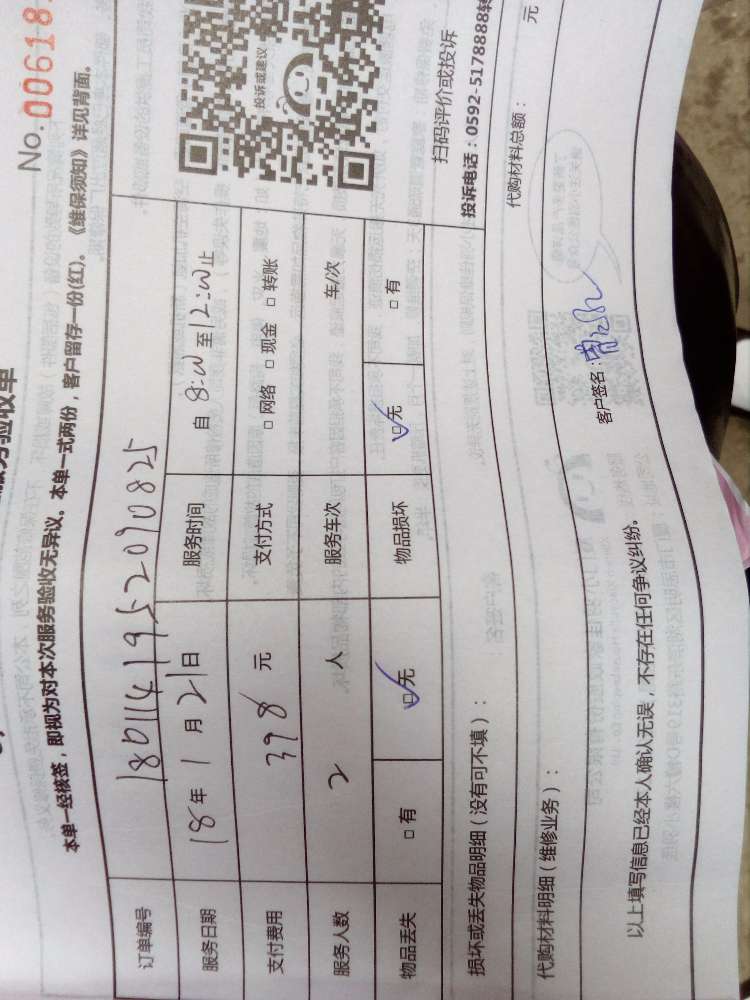 No.00618
本单一经核签，即视为对本次服务验收无异议。本单一式两份，客户留存一份(红)。《维保须知》详见背面。
订单编号 180114195209​0825
服务日期 18年1月21日 服务时间 自8:00至12:00止
支付费用 398元 支付方式 □网络 □现金 □转账
服务人数 2人 服务车次 车/次
物品丢失 □有 ☑无 物品损坏 ☑无 □有
投诉或建议
扫码评价或投诉
投诉电话：0592-5178888转
损坏或丢失物品明细（没有可不填）：
代购材料明细（维修业务）： 代购材料总额： 元
以上填写信息已经本人确认无误，不存在任何争议纠纷。 客户签名：